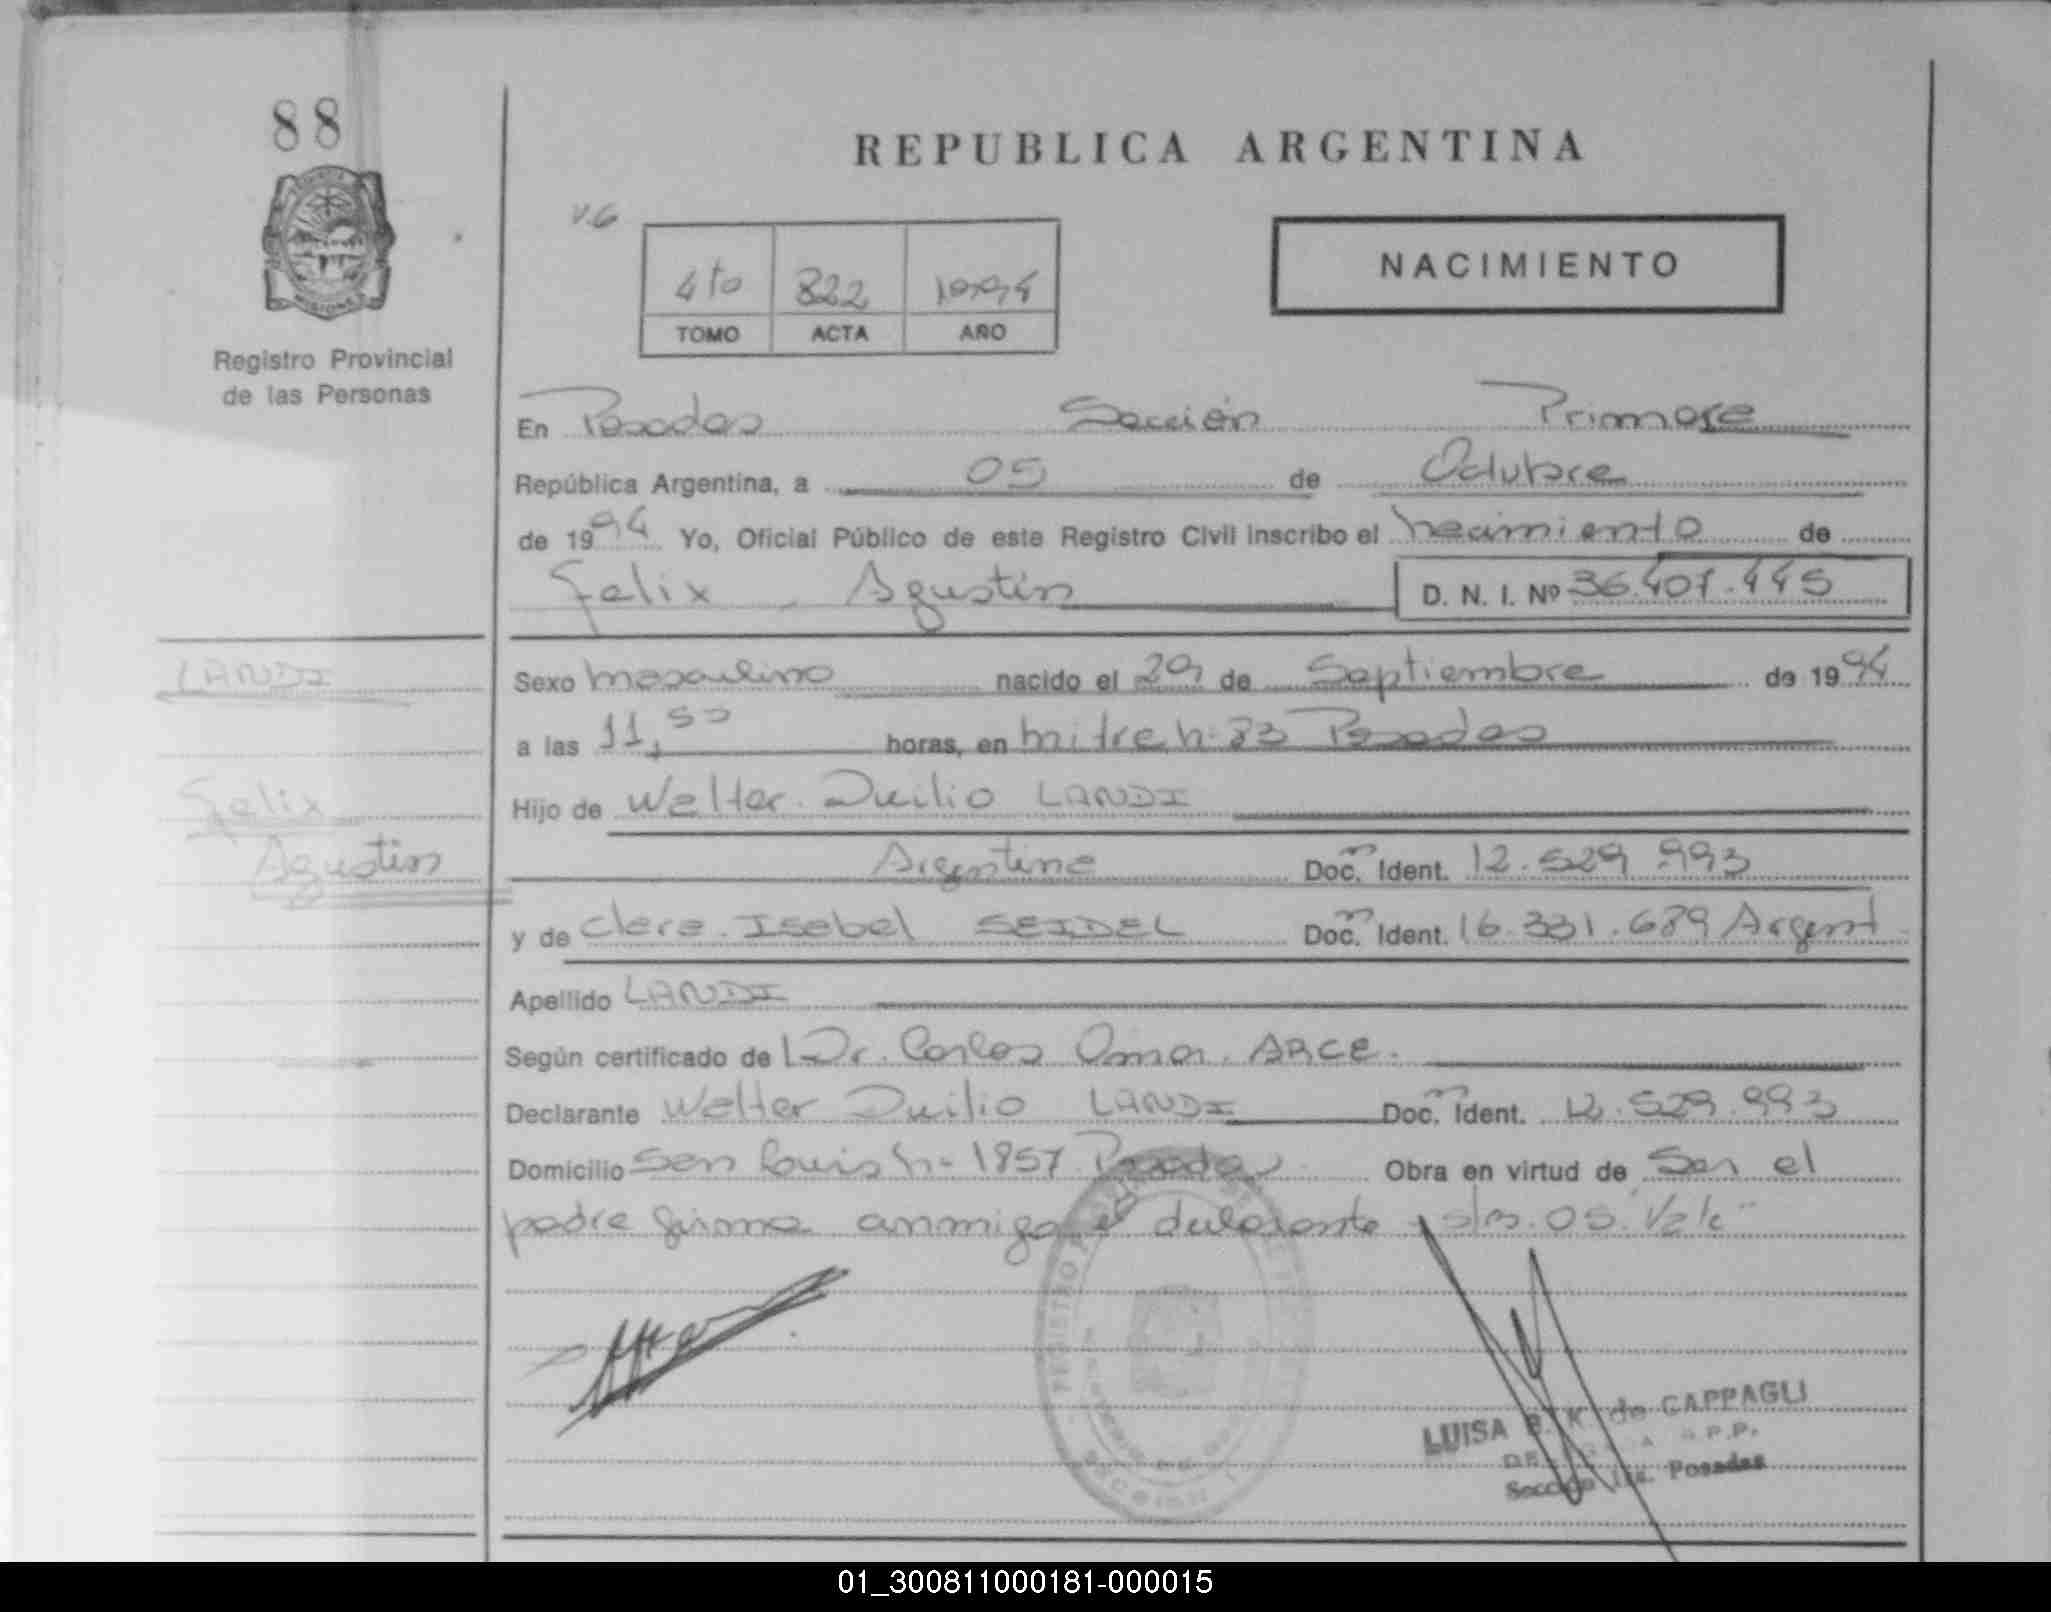 88
REPUBLICA ARGENTINA
V.6
NACIMIENTO
4to 822 1994
TOMO ACTA AÑO
Registro Provincial
de las Personas
En Posadas Sección Primera
República Argentina, a 05 de Octubre
de 1994 Yo, Oficial Público de este Registro Civil inscribo el nacimiento de
Felix Agustin D. N. I. Nº 36.407.445
LANDI
Sexo masculino nacido el 29 de Septiembre de 1994
a las 11,50 horas, en mitre n: 83 Posadas
Felix
Hijo de Walter Duilio LANDI
Agustin
Argentina Doc. Ident. 12.529.993
y de Clara Isabel SEIDEL Doc. Ident. 16.331.689 Argent
Apellido LANDI
Según certificado de Dr. Carlos Omar ARCE.
Declarante Walter Duilio LANDI Doc. Ident. 12.529.993
Domicilio San Luis n- 1957 Posadas Obra en virtud de Ser el
padre firma conmigo el declarante s/r. 05. Vale
REGISTRO
LUISA B. K. de CAPPAGLI
R.P.P.
Sección 1ra. Posadas
01_300811000181-000015